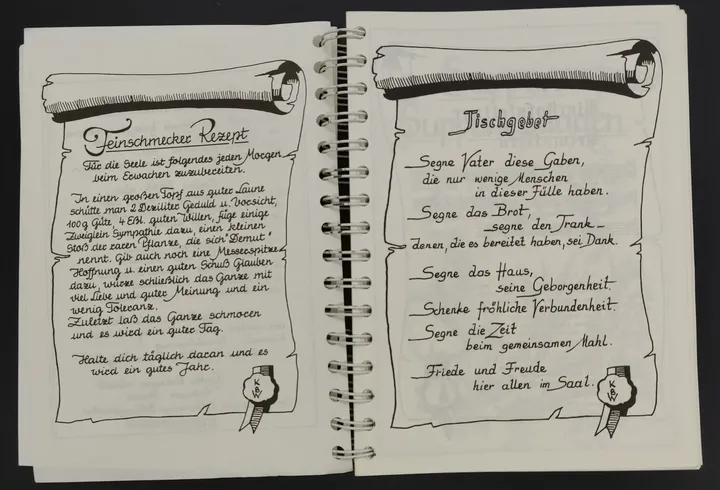 Feinschmecker Rezept
Für die Seele ist folgendes jeden Morgen
beim Erwachen zuzubereiten.
In einen großen Topf aus guter Laune
schütte man 2 Deziliter Geduld u. Vorsicht,
100g Güte, 4 Eßl. guten Willen, füge einige
Zweiglein Sympathie dazu, einen kleinen
Stoß der raren Pflanze, die sich "Demut"
nennt. Gib auch noch eine Messerspitze
Hoffnung u. einen guten Schuß Glauben
dazu, würze schließlich das Ganze mit
viel Liebe und guter Meinung und ein
wenig Toleranz.
Zuletzt laß das Ganze schmoren
und es wird ein guter Tag.
Halte dich täglich daran und es
wird ein gutes Jahr.
K
B
W
Tischgebet
Segne Vater diese Gaben,
die nur wenige Menschen
in dieser Fülle haben.
Segne das Brot,
segne den Trank –
denen, die es bereitet haben, sei Dank.
Segne das Haus,
seine Geborgenheit.
Schenke fröhliche Verbundenheit.
Segne die Zeit
beim gemeinsamen Mahl.
Friede und Freude
hier allen im Saal.
K
B
W